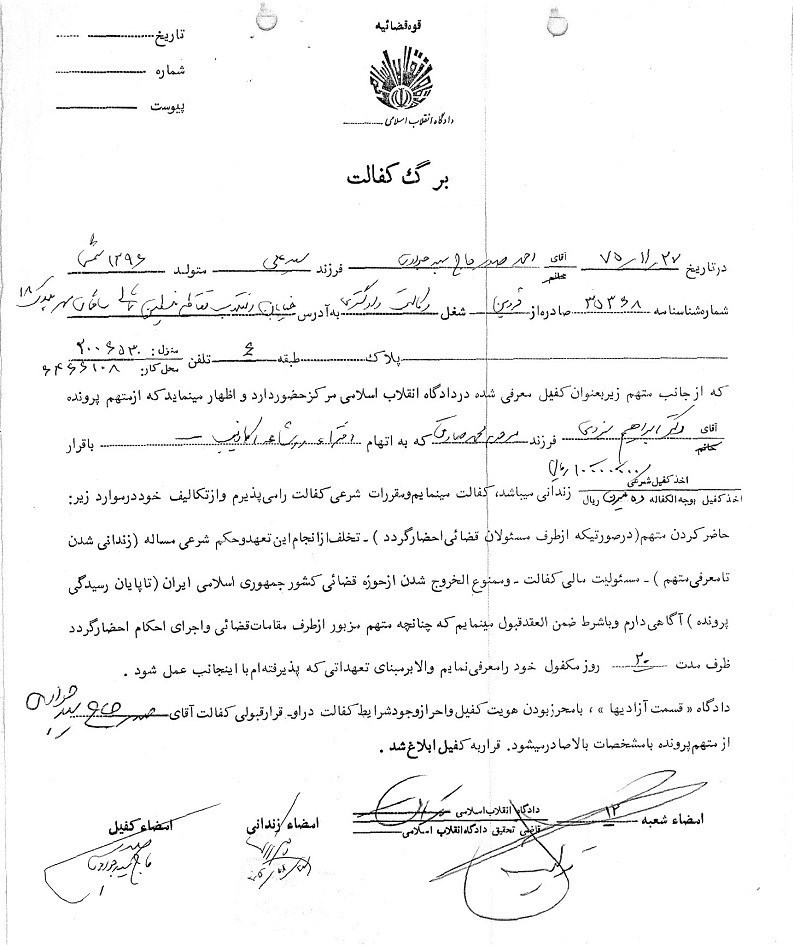 قوه قضائیه
تاریخ
شماره
پیوست
دادگاه انقلاب اسلامی
برگ کفالت
در تاریخ ۷۵/۱۱/۲۷ آقای خانم احمد صدر حاج سید جوادی فرزند سید علی متولد ۱۲۹۶ شمسی
شماره شناسنامه ۳۵۳۶۸ صادره از قزوین شغل وکالت دادگستری به آدرس خیابان انقلاب تقاطع فلسطین ۱۸
پلاک طبقه ۶ تلفن منزل: ۲۰۰۶۵۳۰ محل کار: ۶۴۶۶۱۰۸
که از جانب متهم زیر بعنوان کفیل معرفی شده در دادگاه انقلاب اسلامی مرکز حضور دارد و اظهار مینماید که از متهم پرونده
آقای خانم دکتر ابراهیم یزدی فرزند محمد صادق که به اتهام افتراء و اشاعه اکاذیب باقرار
اخذ کفیل شرعی ۱۰۰۰۰۰۰۰ ریال
اخذ کفیل بوجه الکفاله ده میلیون ریال زندانی میباشد، کفالت مینمایم و مقررات شرعی کفالت را می پذیرم و از تکالیف خود در موارد زیر:
حاضر کردن متهم (در صورتیکه از طرف مسئولان قضائی احضار گردد) ـ تخلف از انجام این تعهد و حکم شرعی مساله (زندانی شدن
تا معرفی متهم) ـ مسئولیت مالی کفالت ـ و ممنوع الخروج شدن از حوزه قضائی کشور جمهوری اسلامی ایران (تا پایان رسیدگی
پرونده) آگاهی دارم و با شرط ضمن العقد قبول مینمایم که چنانچه متهم مزبور از طرف مقامات قضائی و اجرای احکام احضار گردد
ظرف مدت ۲۰ روز مکفول خود را معرفی نمایم والا بر مبنای تعهداتی که پذیرفته ام با اینجانب عمل شود .
دادگاه « قسمت آزادیها » ، با محرز بودن هویت کفیل و احراز وجود شرایط کفالت در او، قرار قبولی کفالت آقای صدر حاج سید جوادی
از متهم پرونده با مشخصات بالا صادر میشود. قرار به کفیل ابلاغ شد .
امضاء شعبه ۱۲ دادگاه انقلاب اسلامی
قاضی تحقیق دادگاه انقلاب اسلامی
امضاء زندانی
امضاء کفیل
صدر
حاج سید جوادی